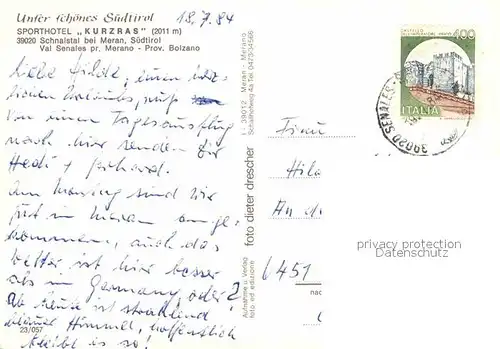 Unser schönes Südtirol
18.7.84
SPORTHOTEL „KURZRAS" (2011 m)
39020 Schnalstal bei Meran, Südtirol
Val Senales pr. Merano - Prov. Bolzano
Liebe Hilde, einen
lieben Urlaubsgruß
von einem Tagesausflug
nach hier senden Dir
Hedi + Gerhard.
Am Montag sind wir
gut in Meran ange-
kommen, auch das
Wetter ist hier besser
als in Germany, oder?
Ab heute ist strahlend
blauer Himmel, hoffentlich
bleibt es so!
23/057
I - 39012 Meran - Merano
foto dieter drescher
Aufnahme u. Verlag
foto ed edizione
400
ITALIA
39020 SENALES
Frau
Hil
An d
privacy protection
Datenschutz
6451